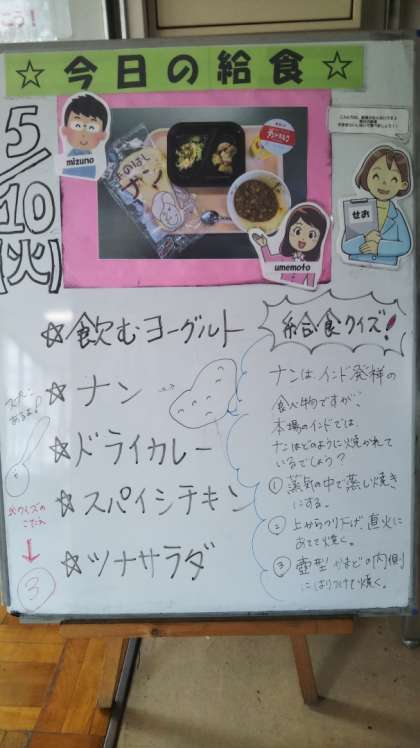 ☆今日の給食☆
5/10(火)
mizuno
ナン
umemoto
せお
☆飲むヨーグルト
☆ナン
☆ドライカレー
☆スパイシチキン
☆ツナサラダ
給食クイズ!
ナンはインド発祥の
食べ物ですが、
本場のインドでは、
ナンはどのように焼かれて
いるでしょう?
①蒸気の中で蒸し焼き
にする。
②上からつり下げ、直火に
あてて焼く。
③壺型かまどの内側
にはりつけて焼く。
↓
3